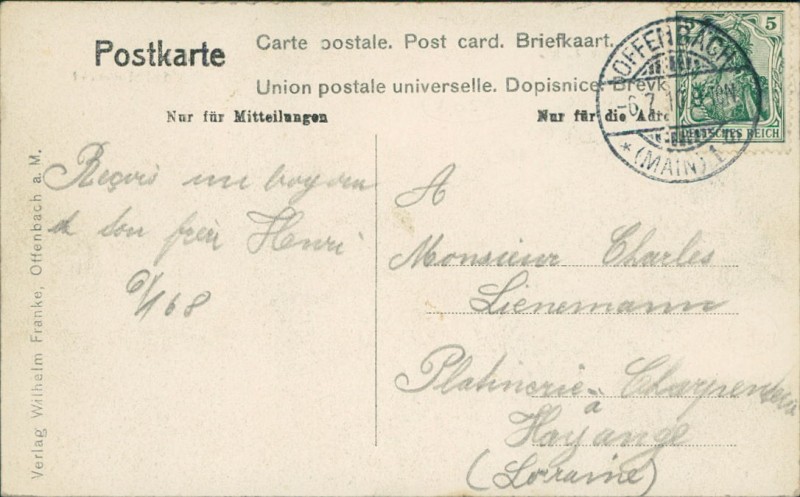 Postkarte
Carte postale. Post card. Briefkaart.
Union postale universelle. Dopisnice. Brevk
Nur für Mitteilungen
Nur für die Adre
OFFENBACH
-6.7.1
*(MAIN) 1
5
DEUTSCHES REICH
Reçois un
ton frère Henri
A
Monsieur Charles
Lienemann
Platinerie - Charpenterie
à
Hayange
(Lorraine)
Verlag Wilhelm Franke, Offenbach a. M.